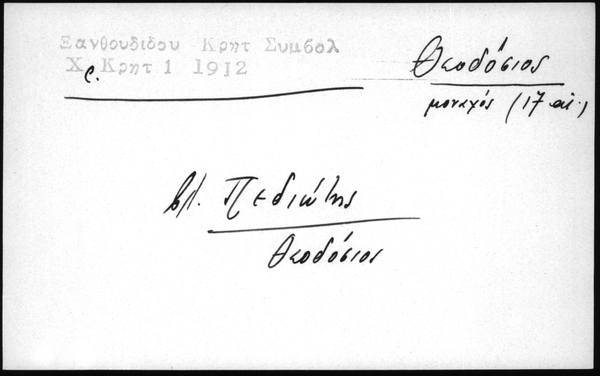 Ξανθουδιδου Κρητ Συμβολ
Χρ. Κρητ 1 1912
Θεοδόσιος
μοναχός (17 αἰ.)
βλ. Πεδιώτης
Θεοδόσιος